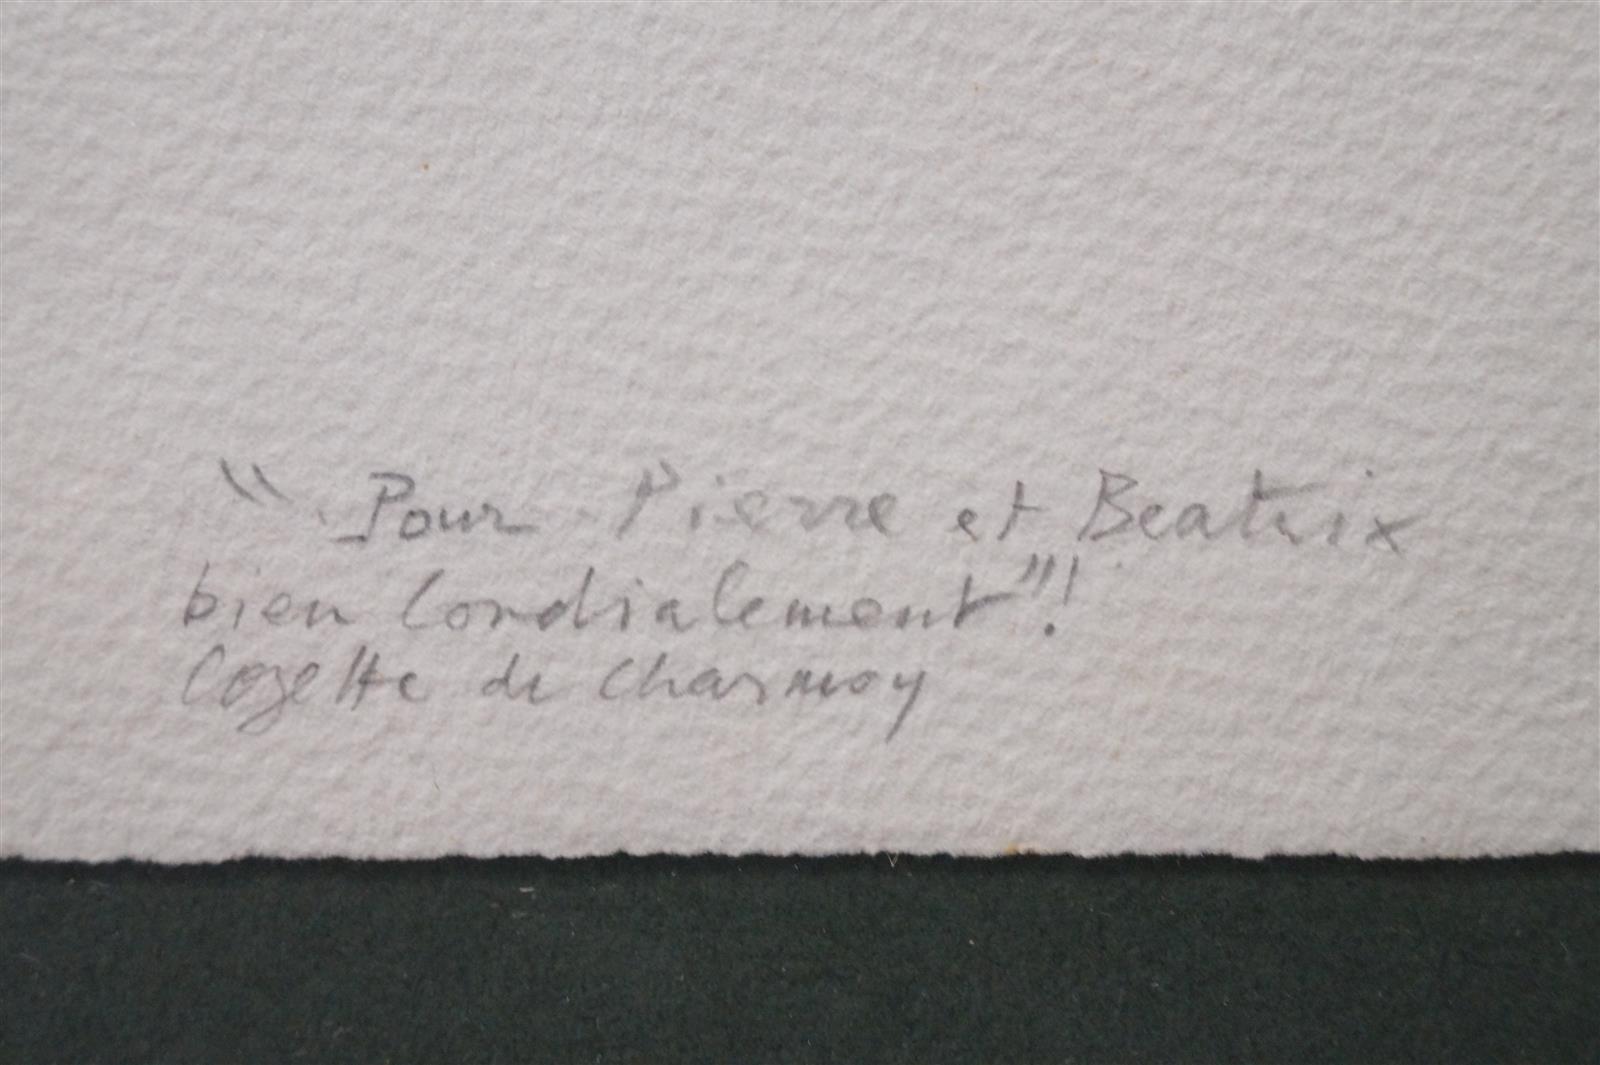 " Pour Pierre et Beatrix
bien Cordialement"!
Cozette de Charmoy